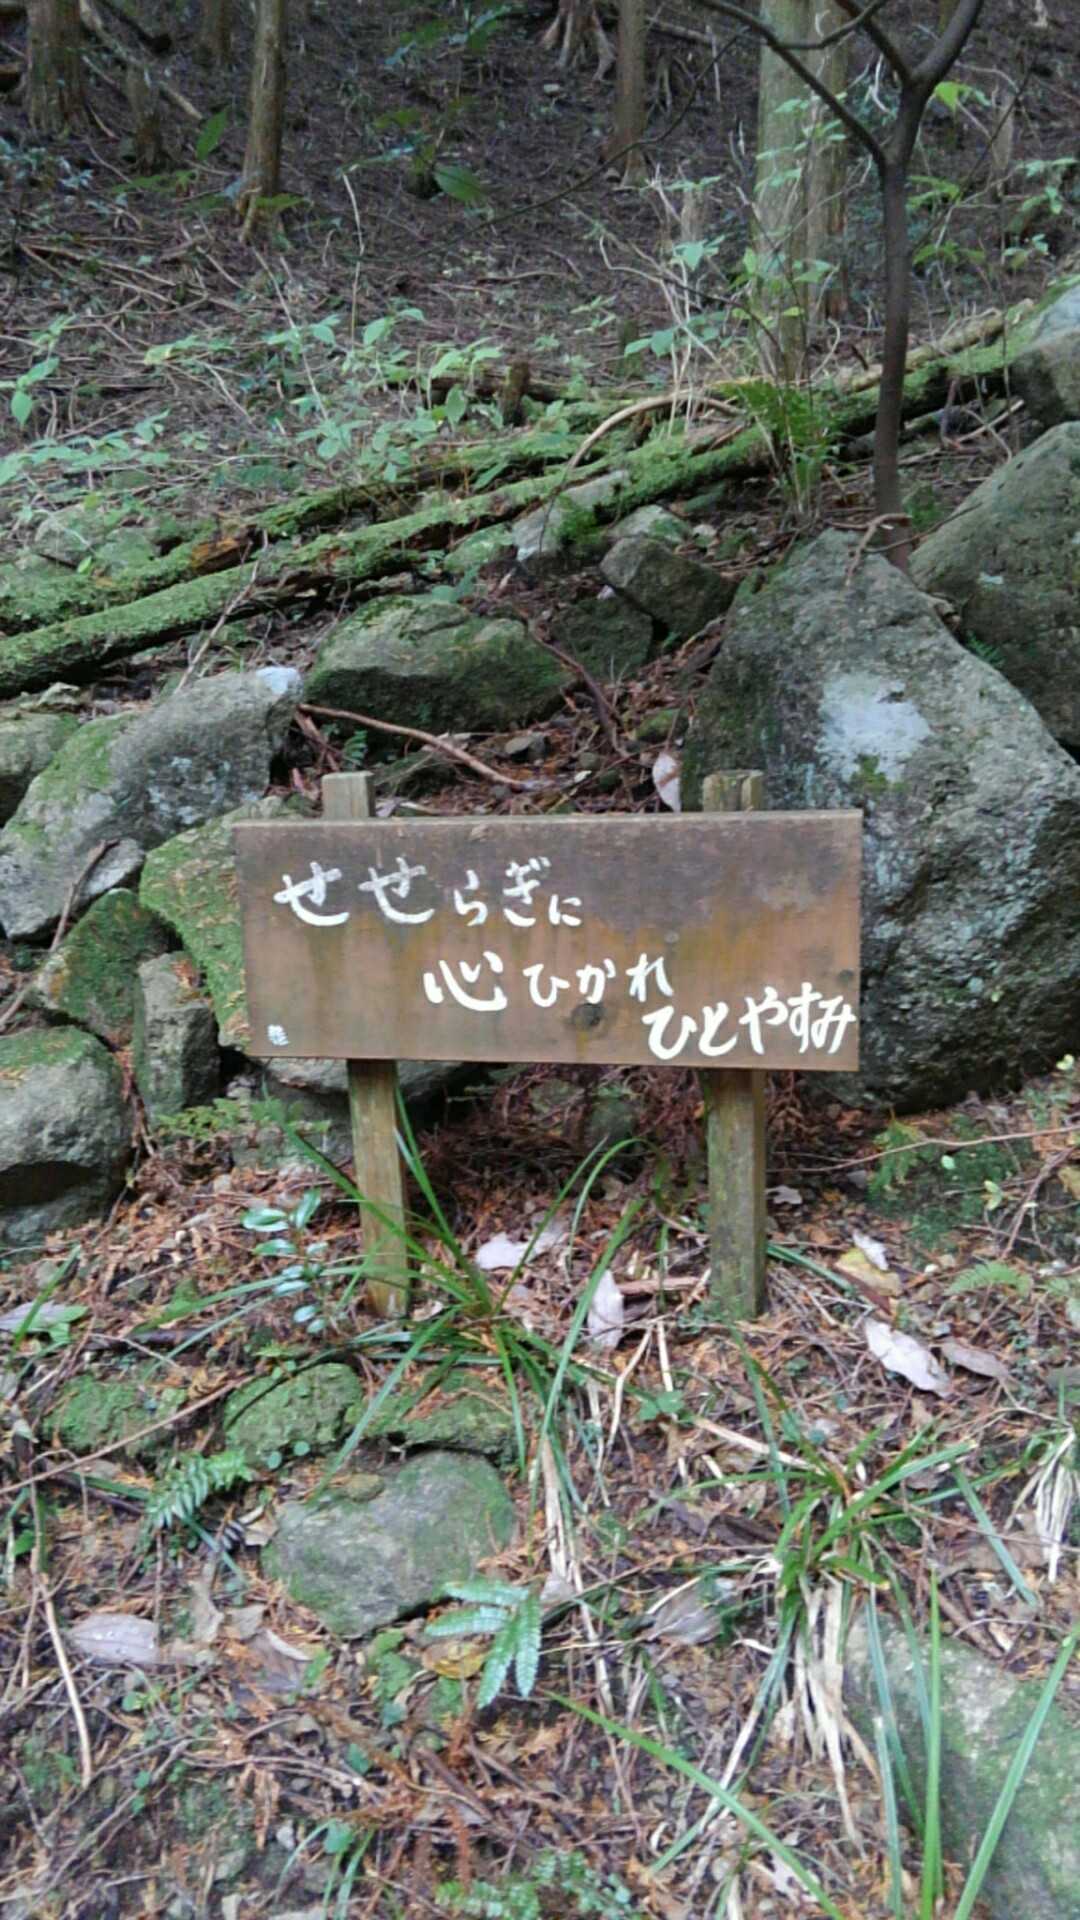 せせらぎに
心ひかれ
ひとやすみ